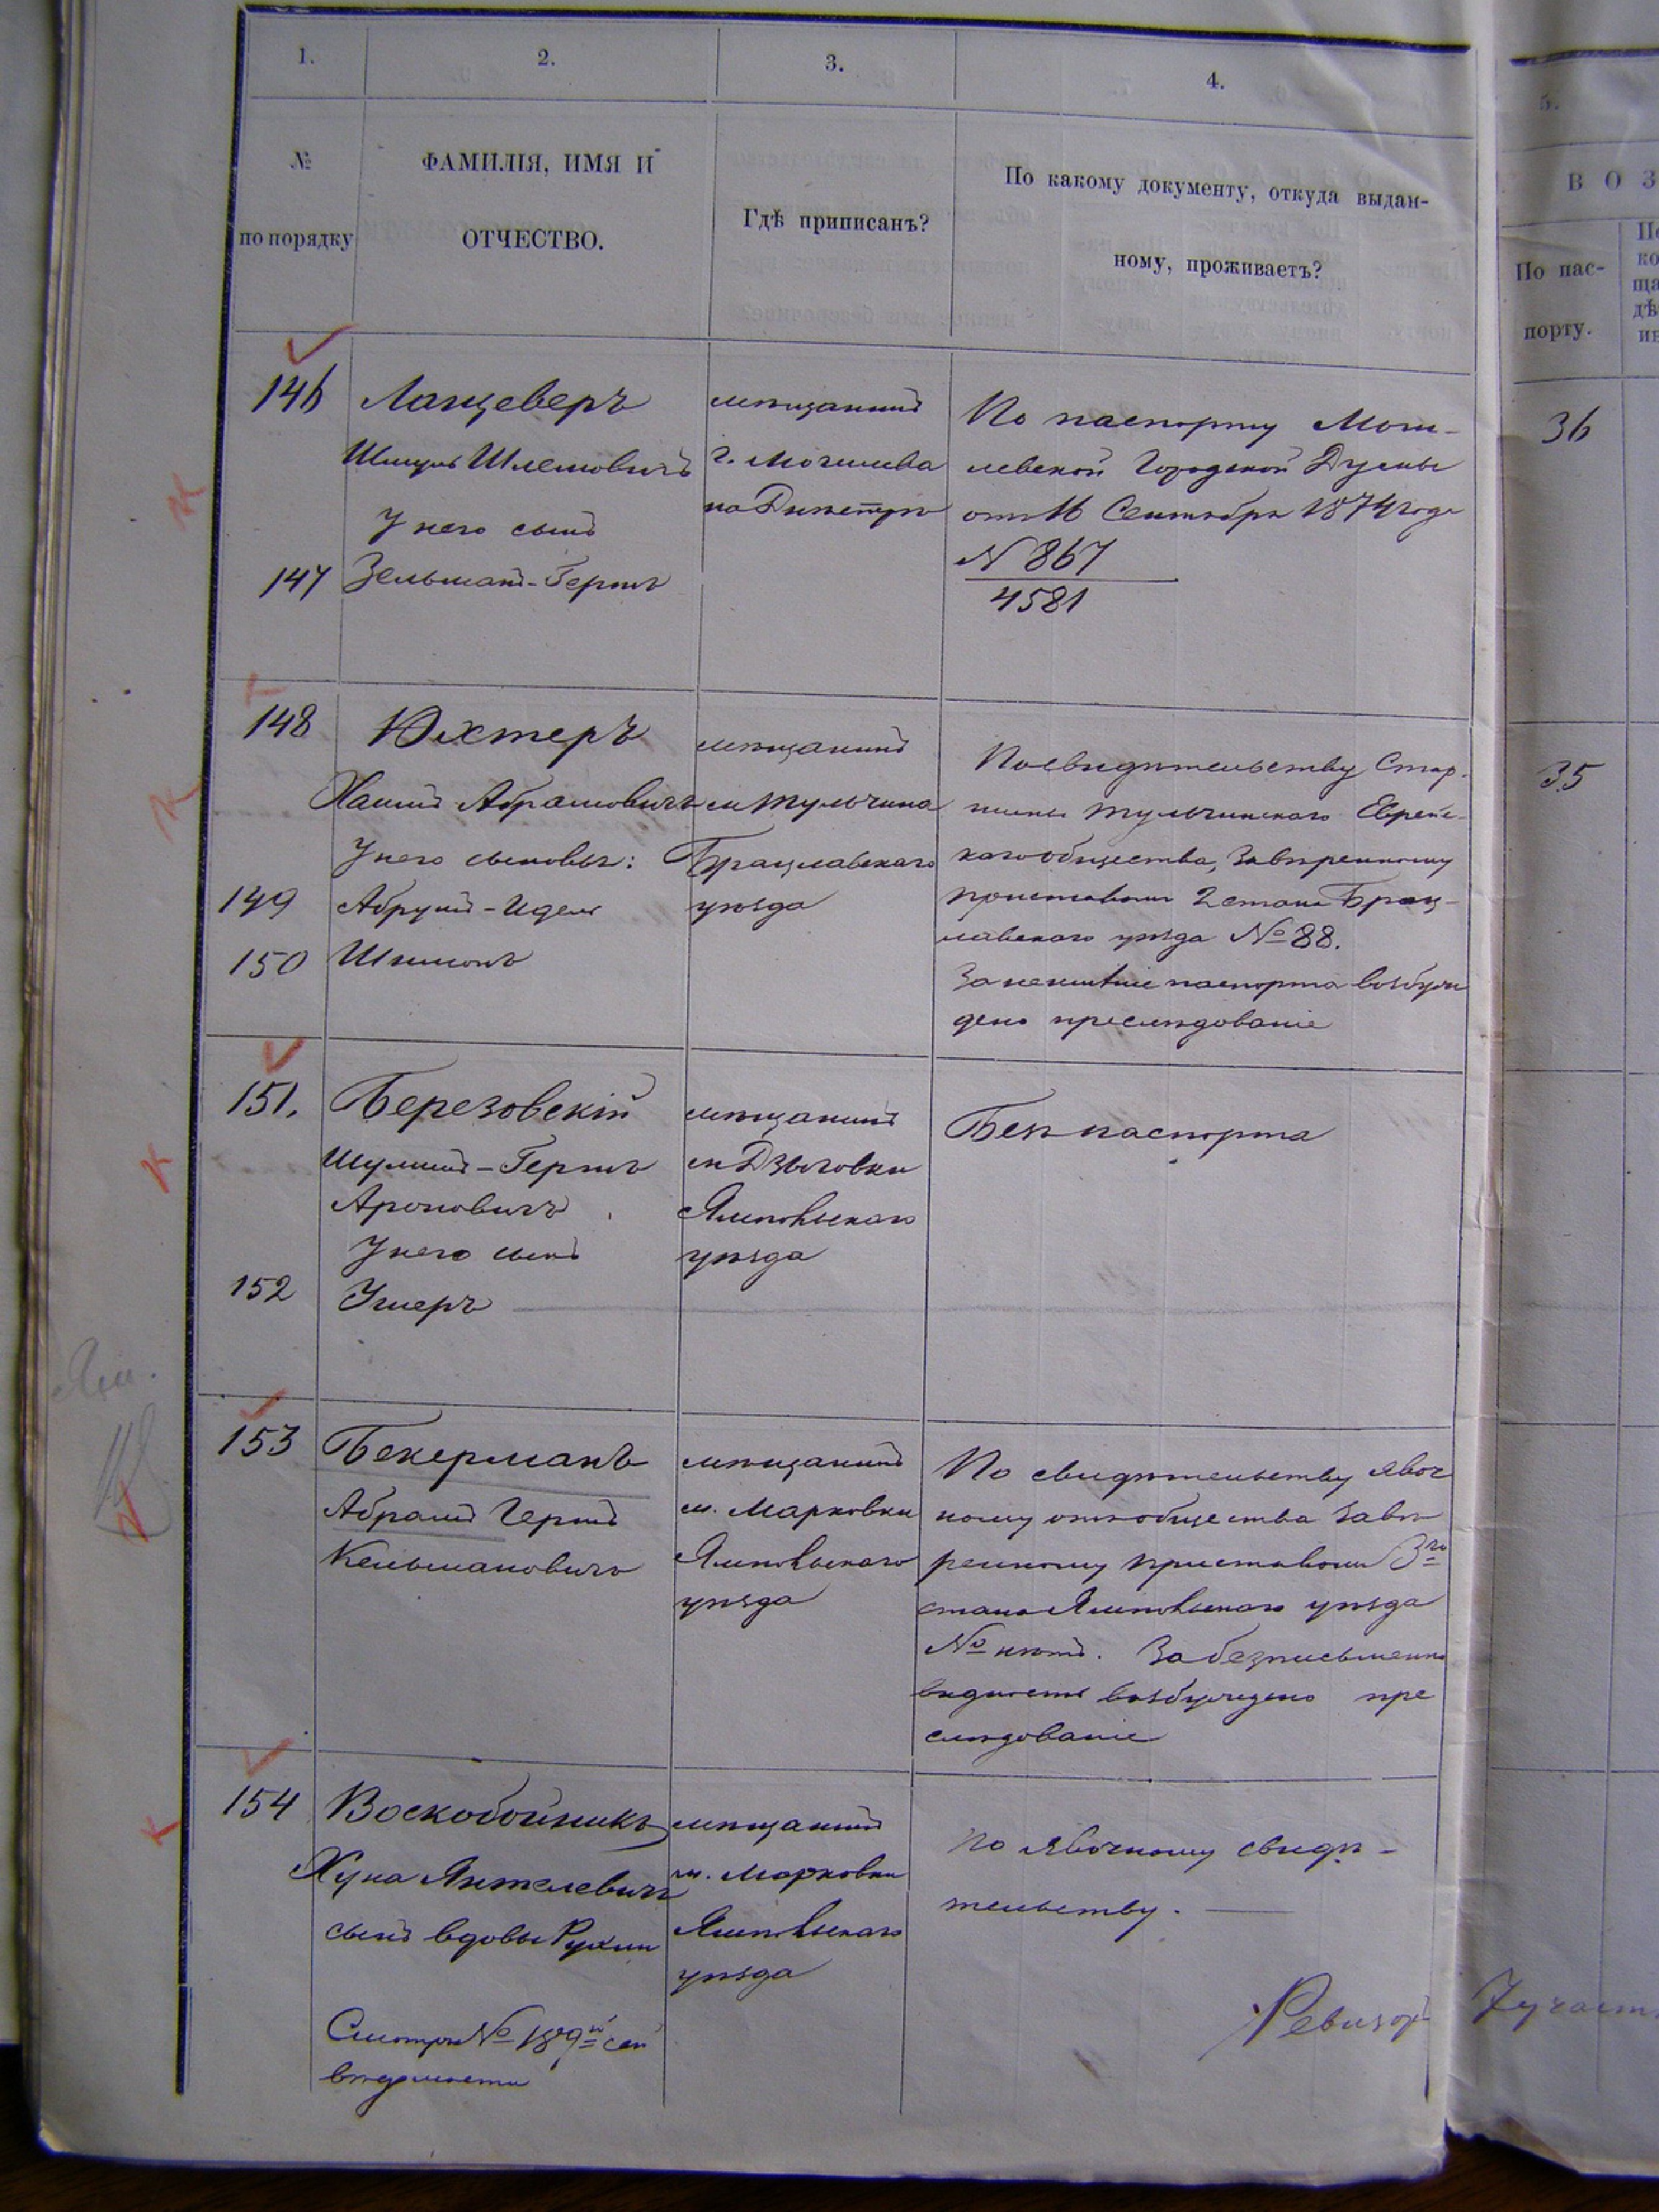 1.
2.
3.
4.
5.
№
по порядку
ФАМИЛІЯ, ИМЯ И
ОТЧЕСТВО.
Гдѣ приписанъ?
По какому документу, откуда выдан-
ному, проживаетъ?
ВОЗ
По пас-
порту.
146
Ланцеверъ
Шмуль Шлемовичъ
У него сынъ
147 Зельманъ-Гершъ
мѣщанинъ
г. Могилева
на Днѣстрѣ
По паспорту Моги-
левской Городской Думы
отъ 16 Сентября 1874 года
N 867
4581
36
148
Юхтеръ
Хаимъ Абрамовичъ
У него сыновья:
149 Абрумъ-Идель
150 Шимонъ
мѣщанинъ
м Тульчина
Брацлавскаго
уѣзда
По свидѣтельству Стар-
шины Тульчинскаго Еврейс-
каго общества, завѣренному
приставомъ 2 стана Брац-
лавскаго уѣзда № 88.
За неимѣніе паспорта возбуж
дено преслѣдованіе
35
151.
Березовскій
Шулимъ-Гершъ
Ароновичъ
У него сынъ
152 Ушеръ
мѣщанинъ
м Дзыговки
Ямпольскаго
уѣзда
Безъ паспорта
Ям.
153
Бекерманъ
Абрамъ Гершъ
Кельмановичъ
мѣщанинъ
м. Марковки
Ямпольскаго
уѣзда
По свидѣтельству явоч
ному отъ общества завѣ
ренному приставомъ 3го
стана Ямпольскаго уѣзда
№ нѣтъ. За безписьменно
видность возбуждено пре
слѣдованіе
154
Воскобойникъ
Хуна Янкелевичъ
сынъ вдовы Рухли
Смотри № 189й сей
вѣдомости
мѣщанинъ
м. Марковки
Ямпольскаго
уѣзда
по явочному свидѣ-
тельству.
Ревизоръ 7 участ